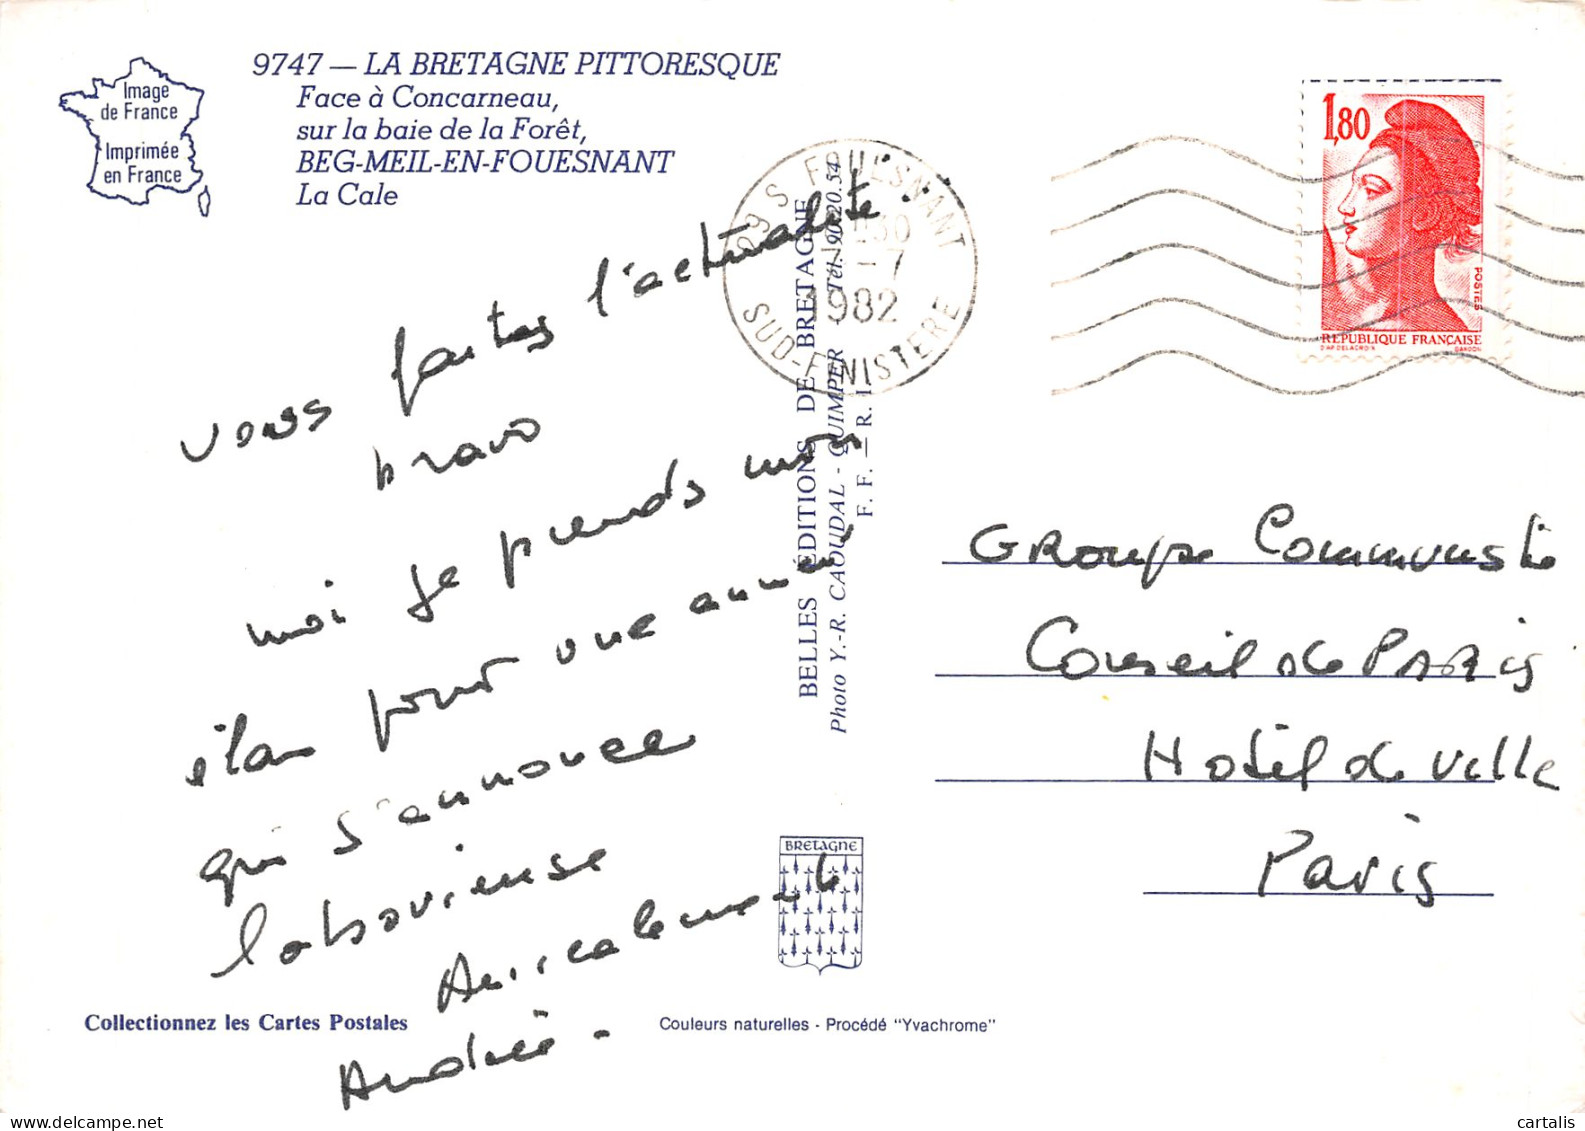 Image
de France
Imprimée
en France
9747 — LA BRETAGNE PITTORESQUE
Face à Concarneau,
sur la baie de la Forêt,
BEG-MEIL-EN-FOUESNANT
La Cale
29 S FOUESNANT
30
-7
1982
SUD-FINISTERE
1,80
POSTES
REPUBLIQUE FRANÇAISE
D'AP DELACROIX GANDON
vous faites l'actualité.
bravo
moi je prends mon
élan pour une année,
qui s'annonce
laborieuse
Amicalement
Andrée -
BELLES ÉDITIONS DE BRETAGNE
Photo Y.-R. CAOUDAL - QUIMPER - Tél. 90.20.54
F. F. — R. I.
Groupe Communiste
Conseil de PARis
Hotel de ville
Paris
BRETAGNE
Collectionnez les Cartes Postales
Couleurs naturelles - Procédé "Yvachrome"
cartalis